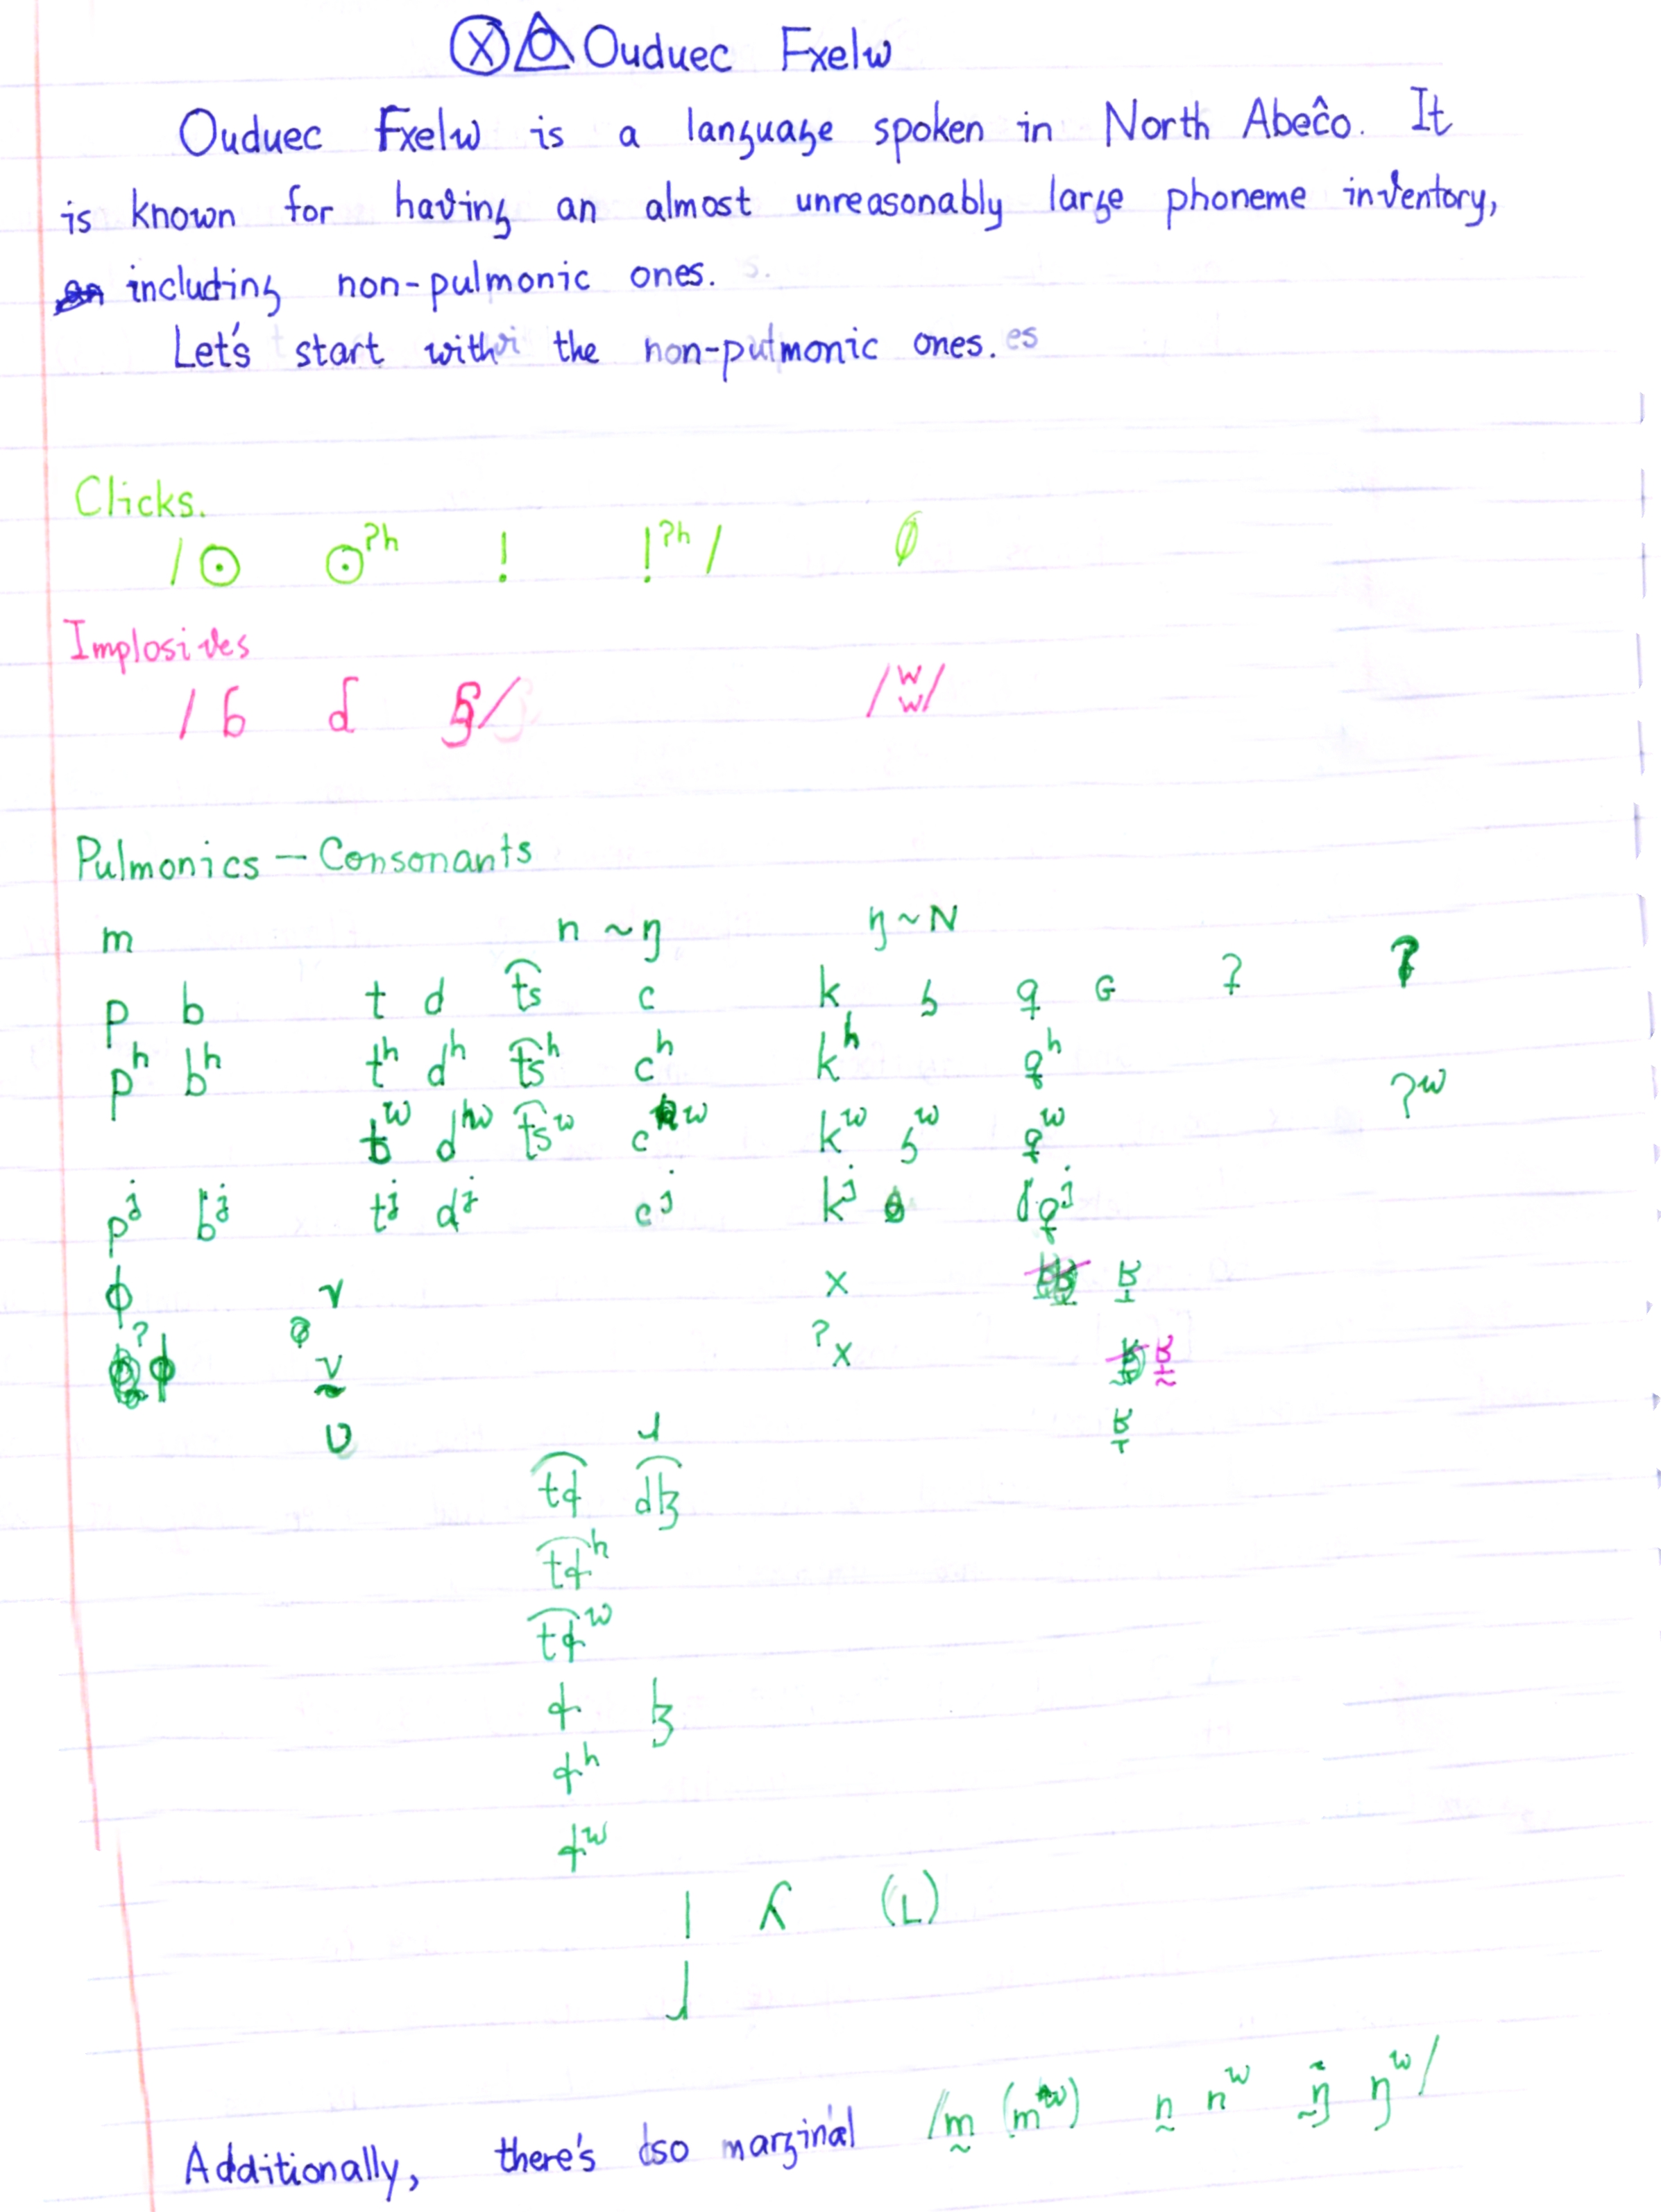 Ouduec Fxelw
Ouduec Fxelw is a language spoken in North Abeĉo. It
is known for having an almost unreasonably large phoneme inventory,
including non-pulmonic ones.
Let's start with the non-pulmonic ones.
Clicks.
/ʘ ʘˀʰ ! !ˀʰ/
Implosives
/ɓ ɗ §/ /ʍ/
Pulmonics – Consonants
m n ~ ŋ ŋ ~ N
p b t d t͡s c k ɡ q ɢ ʔ
pʰ bʰ tʰ dʰ t͡sʰ cʰ kʰ qʰ ʔʷ
tʷ dʷ t͡sʷ cʷ kʷ ɡʷ qʷ
pʲ bʲ tʲ dʲ cʲ kʲ qʲ
ɸ v x ʁ̞
ˀɸ v̰ ˀx
ʋ ʁ̝
t͡ɬ d͡ɮ
t͡ɬʰ
t͡ɬʷ
ɬ ɮ
ɬʰ
ɬʷ
l ʎ (ʟ)
Additionally, there's also marginal /m̰ (mʷ) n̰ nʷ ŋ̰ ŋʷ/